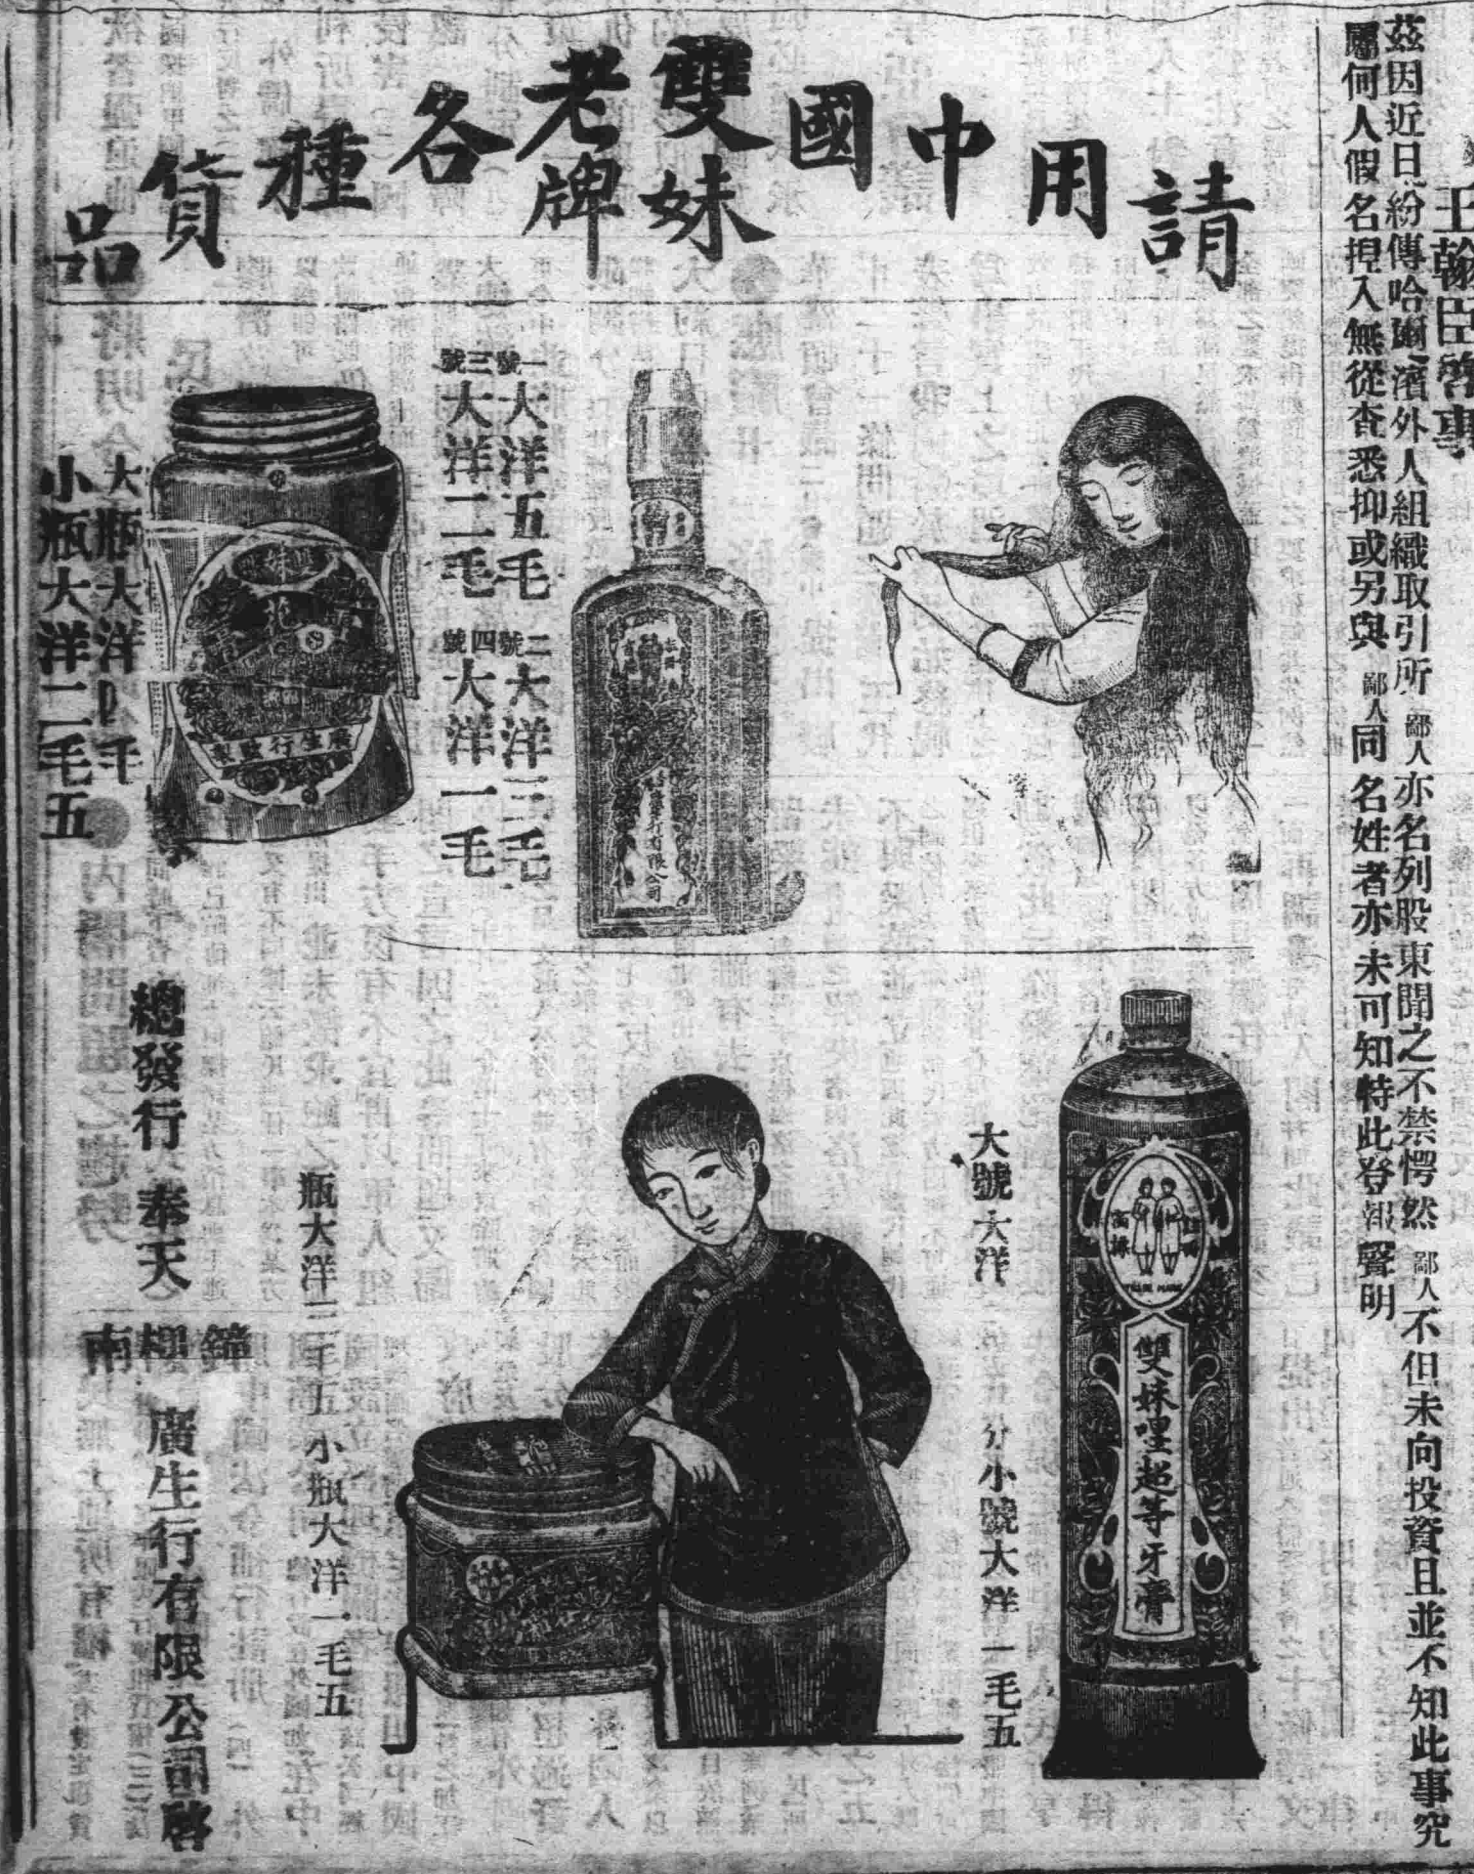 王翰臣啓事
茲因近日紛傳哈爾濱外人組織取引所鄙人亦名列股東聞之不禁愕然鄙人不但未向投資且並不知此事究
屬何人假名揑入無從查悉抑或另與鄙人同名姓者亦未可知特此登報聲明
請用中國雙妹老牌各種貨品
一號大洋五毛
二號大洋三毛
三號大洋二毛
四號大洋一毛
大瓶大洋四毛
小瓶大洋二毛五
廣生行有限公司
雙妹嘜超等牙膏
大號大洋
分小號大洋一毛五
瓶大洋三毛五小瓶大洋一毛五
總發行奉天
鐘樓南
廣生行有限公司啓